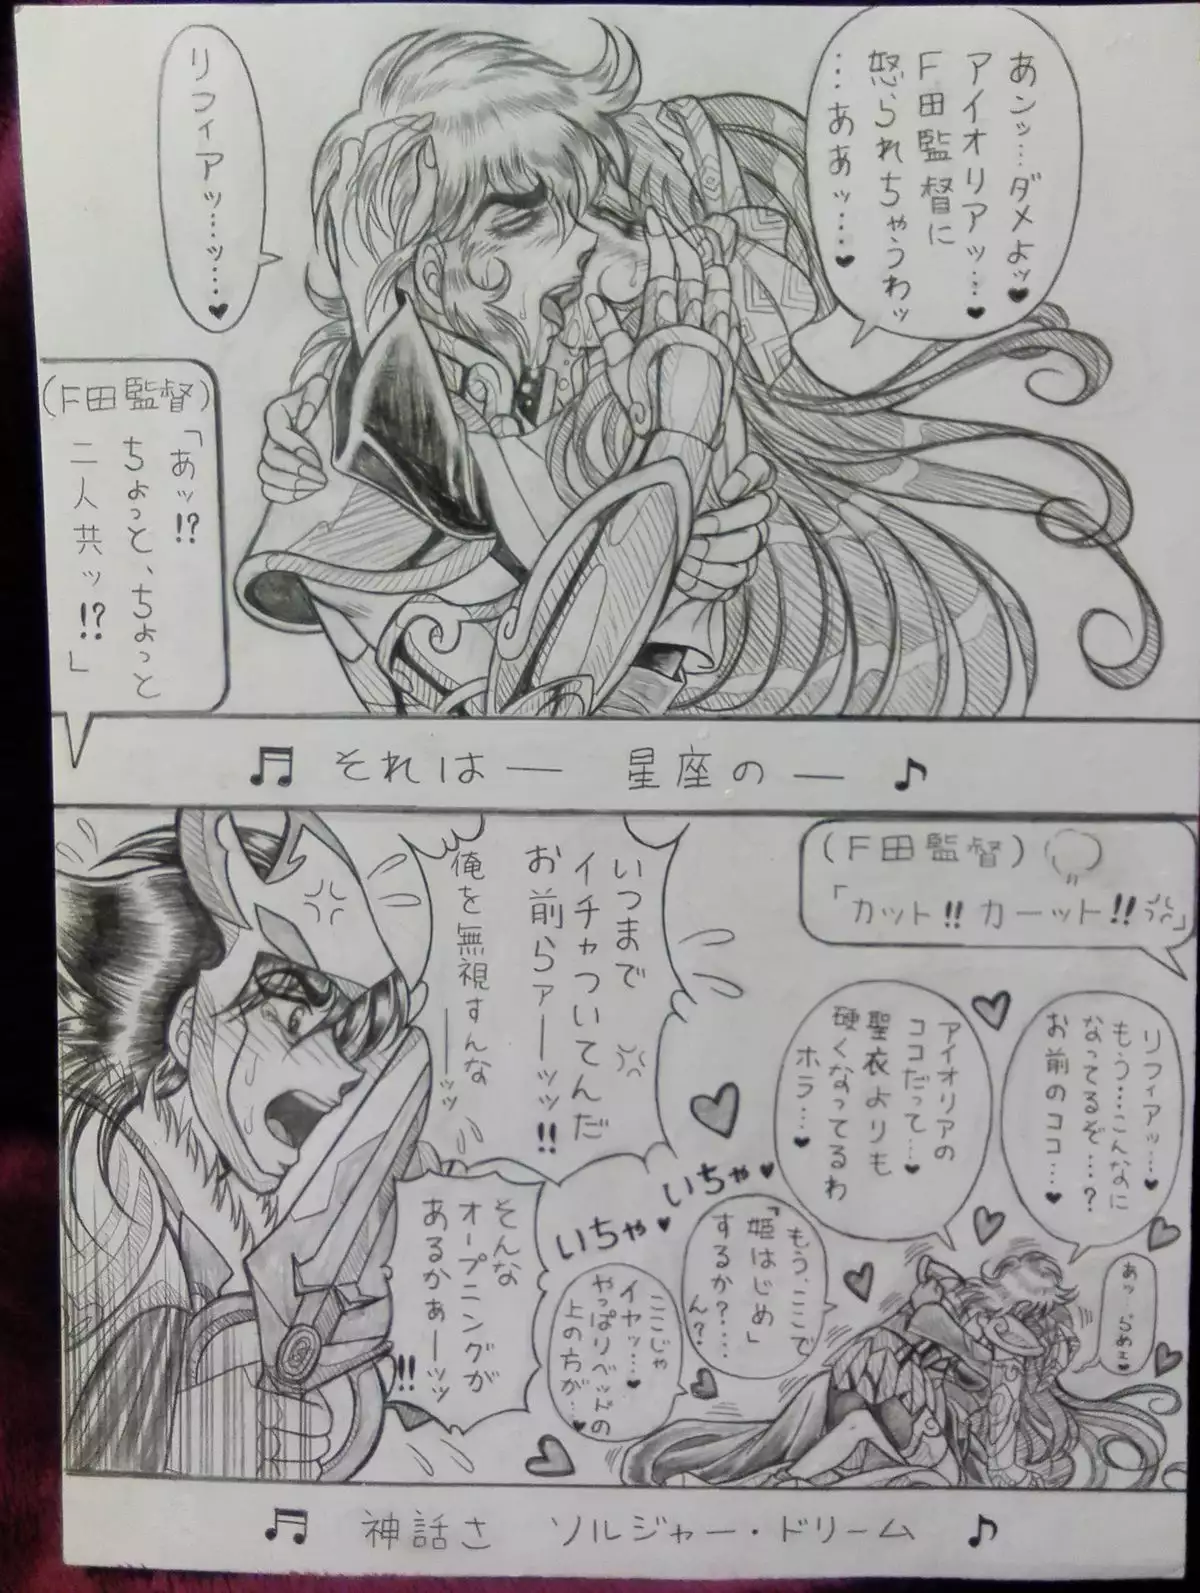 あンッ…ダメよッ♥
アイオリアッ…♥
F田監督に
怒られちゃうわッ
…ああッ…♥
リフィアッ…ッ…♥
(F田監督)
「あッ!?
ちょっと、ちょっと
二人共ッ!?」
♬ それは― 星座の― ♪
(F田監督)
「カット!! カーット!!」
リフィアッ…♥
もう…こんなに
なってるぞ…?
お前のココ…♥
アイオリアの
ココだって…♥
聖衣よりも
硬くなってるわ
ホラ…♥
いつまで
イチャついてんだ
お前らァーッッ!!
俺を無視すんな
―ッッ
そんな
オープニングが
あるかぁーッッ
!!
いちゃ♥
いちゃ♥
もう、ここで
「姫はじめ」
するか?…
ん?
ここじゃ
イヤッ…♥
やっぱりベッドの
上の方が…♥
あっ…らめェ♥
♬ 神話さ ソルジャー・ドリーム ♪